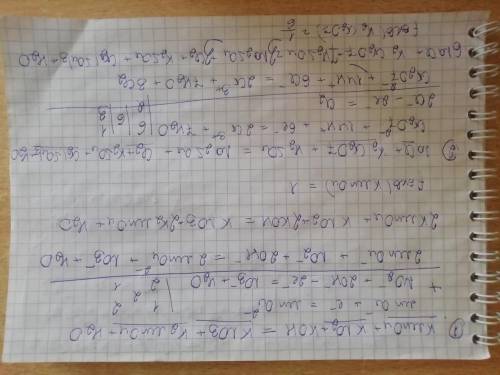 ① KMnO4 + KNO2 + KOH = KNO3 + K2MnO4 + H2O
MnO4⁻ + e⁻ = MnO4²⁻ | 2 2
+ NO2⁻ + 2OH⁻ - 2e⁻ = NO3⁻ + H2O | 1
2MnO4⁻ + NO2⁻ + 2OH⁻ = 2MnO4²⁻ + NO3⁻ + H2O
2KMnO4 + KNO2 + 2KOH = KNO3 + 2K2MnO4 + H2O
Fэкв(KMnO4) = 1
② NaCl + K2Cr2O7 + H2SO4 = Na2SO4 + Cl2 + K2SO4 + Cr2(SO4)3 + H2O
Cr2O7²⁻ + 14H⁺ + 6e⁻ = 2Cr³⁺ + 7H2O | 6 | 6 | 1
2Cl⁻ - 2e = Cl2 | 2 | | 3
Cr2O7²⁻ + 14H⁺ + 6Cl⁻ = 2Cr³⁺ + 7H2O + 3Cl2
6NaCl + K2Cr2O7 + 7H2SO4 = 3Na2SO4 + 3Cl2 + K2SO4 + Cr2(SO4)3 + 7H2O
Fэкв(K2Cr2O7) = 1/6